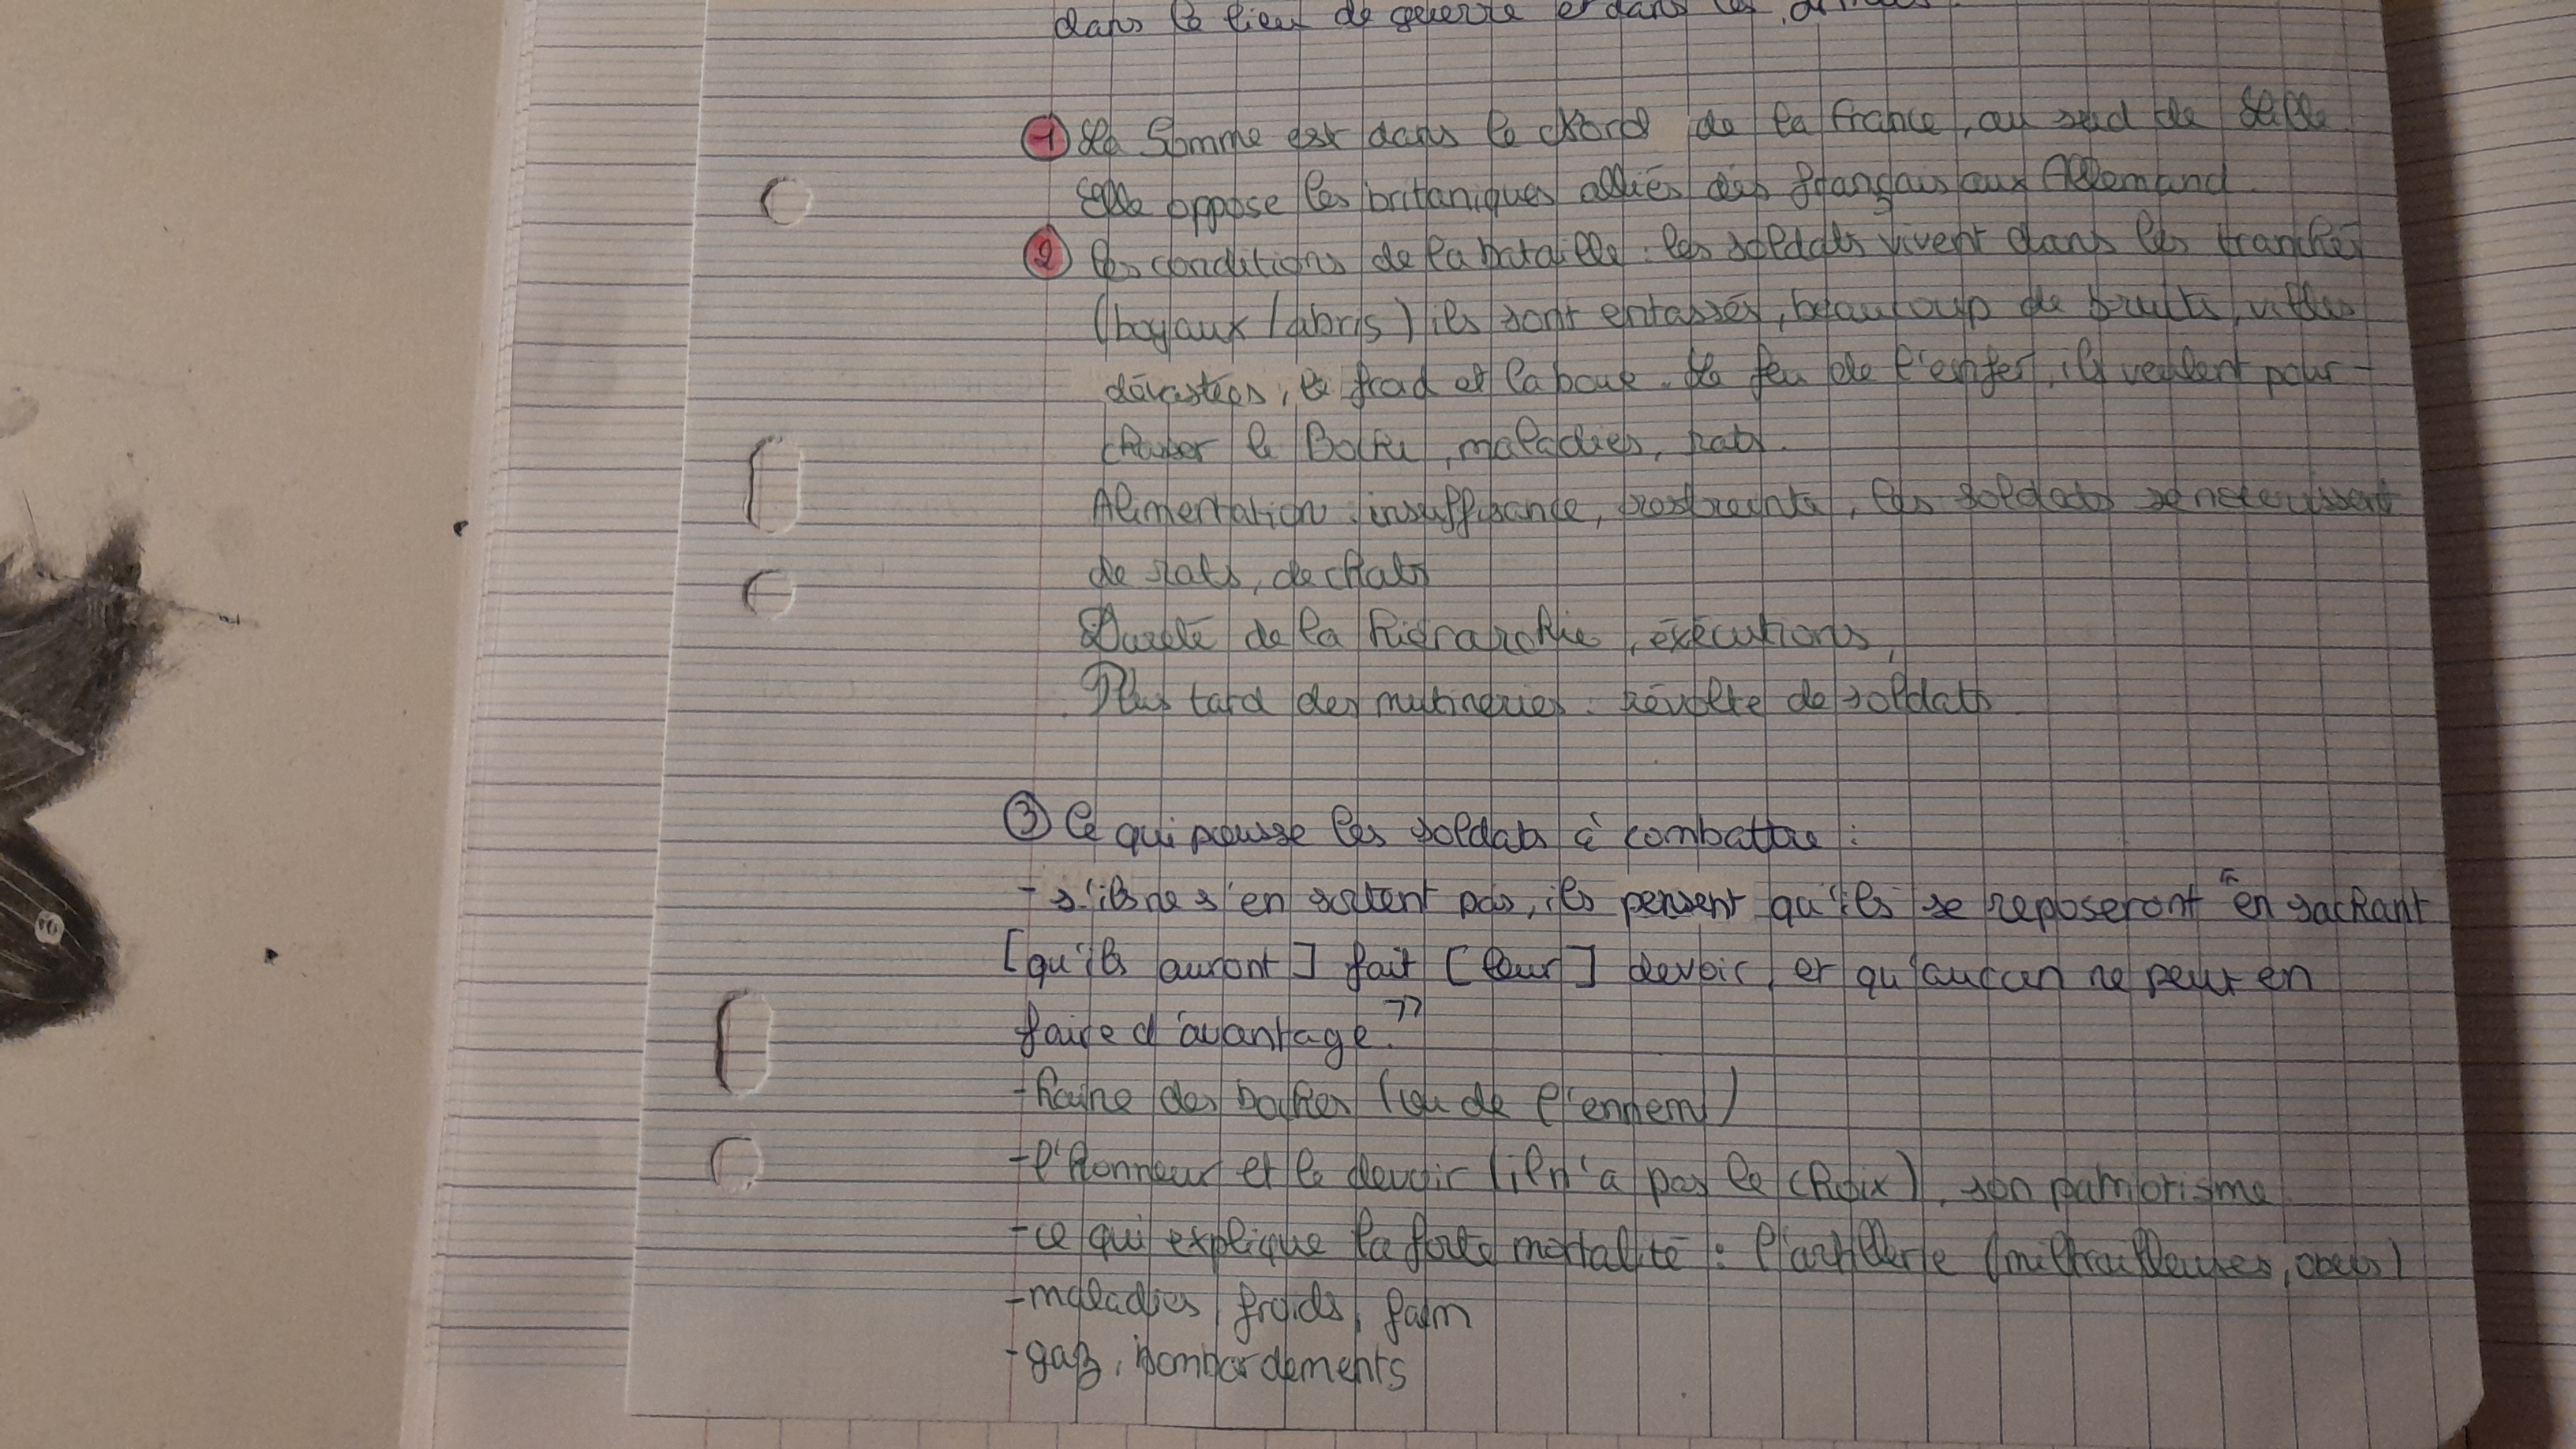 dans le lieu de guerre et dans les
① La Somme est dans le Nord de la France, au sud de Lille.
Elle oppose les britaniques alliés des français aux Allemand.
② les conditions de la bataille : les soldats vivent dans les tranchés
(boyaux / abris) ils sont entassés, beaucoup de bruits, villes
dévastées, le froid et la boue. Le feu de l'enfer, ils veulent pour-
chasser le Boche, maladies, rats.
Alimentation insuffisante, les soldats se
de rats, de chats
Dureté de la hiérarchie, exécutions,
Plus tard des mutineries : révolte de soldats
③ Ce qui pousse les soldats à combattre :
- s'ils ne s'en sortent pas, ils pensent qu'ils se reposeront "en sachant
[qu'ils auront] fait [leur] devoir, et qu'aucun ne peut en
faire d'avantage."
- haine des boches (ou de l'ennemi)
- l'honneur et le devoir (il n'a pas le choix), son patriotisme
- ce qui explique la forte mortalité : l'artillerie (mitrailleuses, obus)
- maladies, froids, faim
- gaz, bombardements